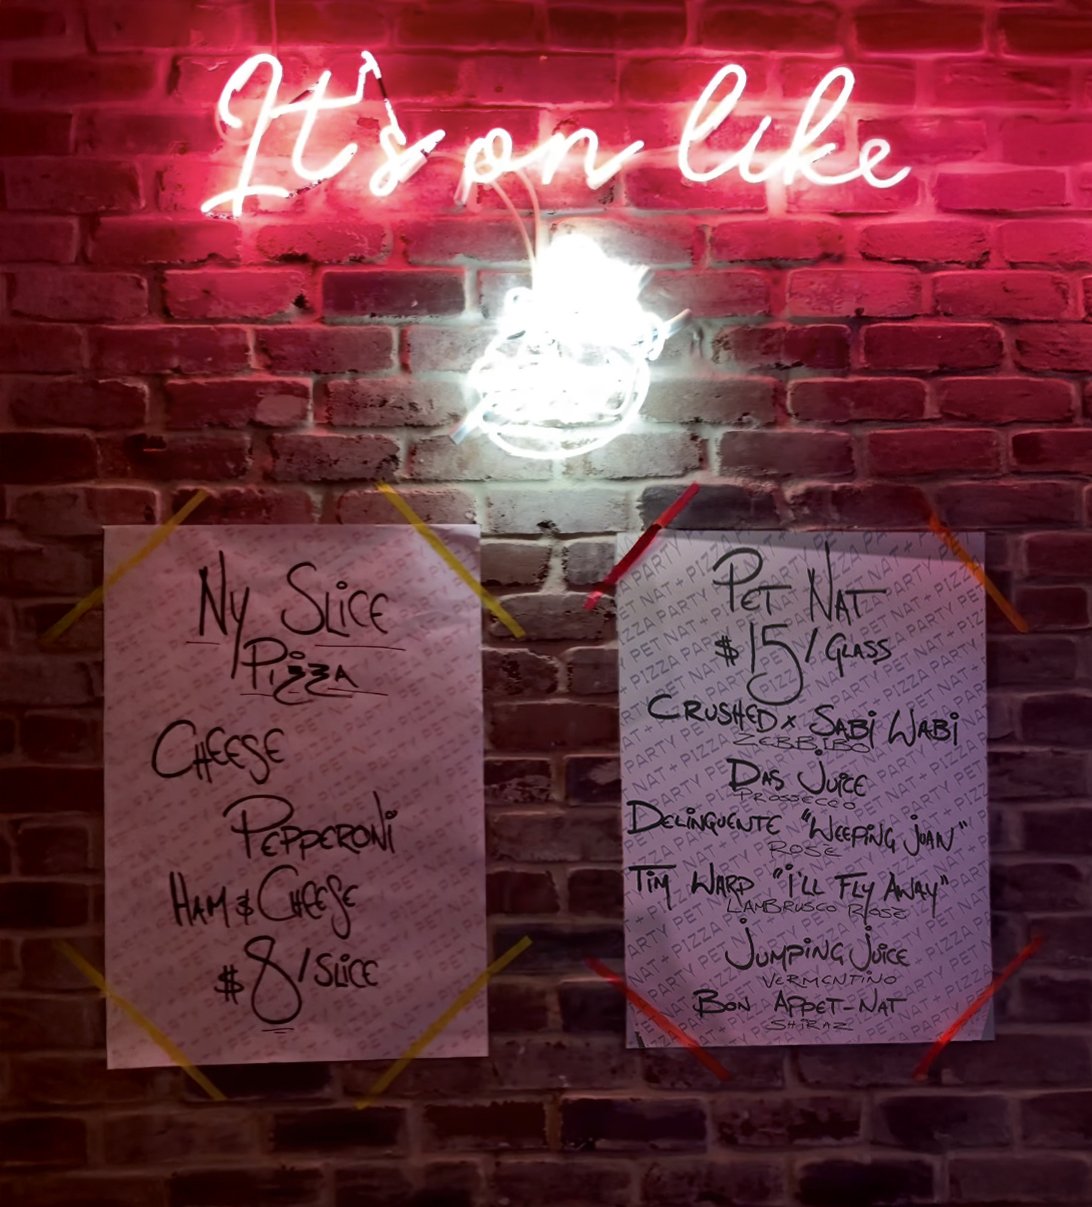 It's on like
NY SLICE
PIZZA
CHEESE
PEPPERONI
HAM & CHEESE
$8/SLICE
PET NAT
$15/GLASS
CRUSHED x SABI WABI
ZEBBIBO
DAS JUICE
PROSECCO
DELINQUENTE "WEEPING JOAN"
ROSE
TIM WARD "I'LL FLY AWAY"
LAMBRUSCO ROSE
JUMPING JUICE
VERMENTINO
BON APPET-NAT
SHIRAZ
PIZZA PARTY PET NAT + PIZZA PARTY PET NAT +